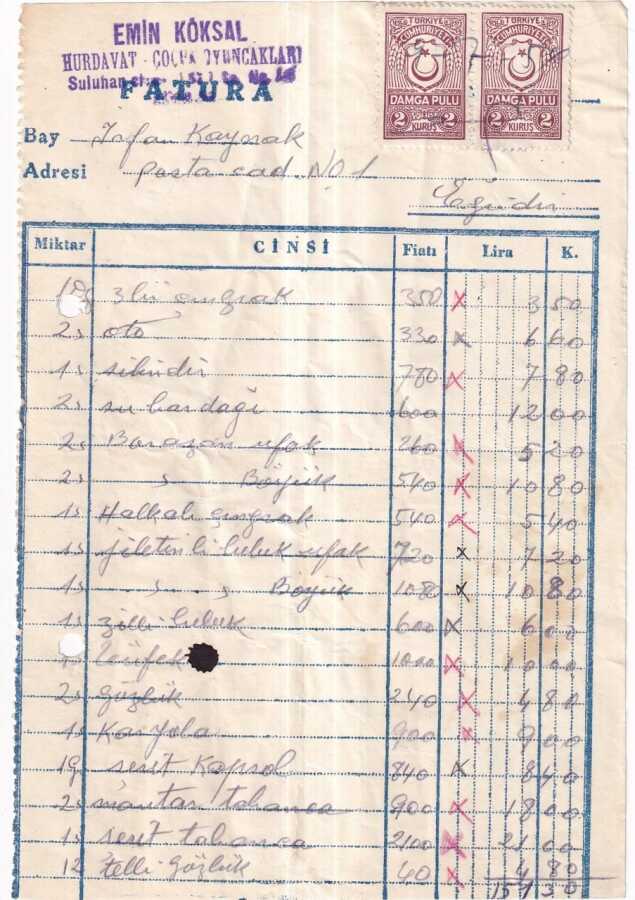 EMİN KÖKSAL
HURDAVAT - ÇOCUK OYUNCAKLARI
Suluhan No.
FATURA
TÜRKİYE CUMHURİYETİ TÜRKİYE CUMHURİYETİ
DAMGA PULU DAMGA PULU
2 KURUŞ 2 2 KURUŞ 2
Bay İrfan Kaynak
Adresi posta cad. NO 1
Eğridir
Miktar CİNSİ Fiatı Lira K.
3 lü çıngrak 350 x 3 50
2 oto 330 x 6 60
1 silindir 780 x 7 80
2 su bardağı 600 12 00
2 Borazan ufak 260 x 5 20
2 " Böyük 540 x 10 80
1 Halkalı çıngrak 540 x 5 40
1 jiletin li ufak 720 x 7 20
1 " " " Böyük 1080 x 10 80
1 zilli 600 x 6 00
1 tüfek 1000 x 10 00
2 gözlük 240 x 4 80
1 Karyola 900 x 9 00
1 serit Kapsol 840 x 8 40
2 mantar tabanca 900 x 18 00
1 serit tabanca 2100 x 21 00
12 telli gözlük 40 x 4 80
151 30